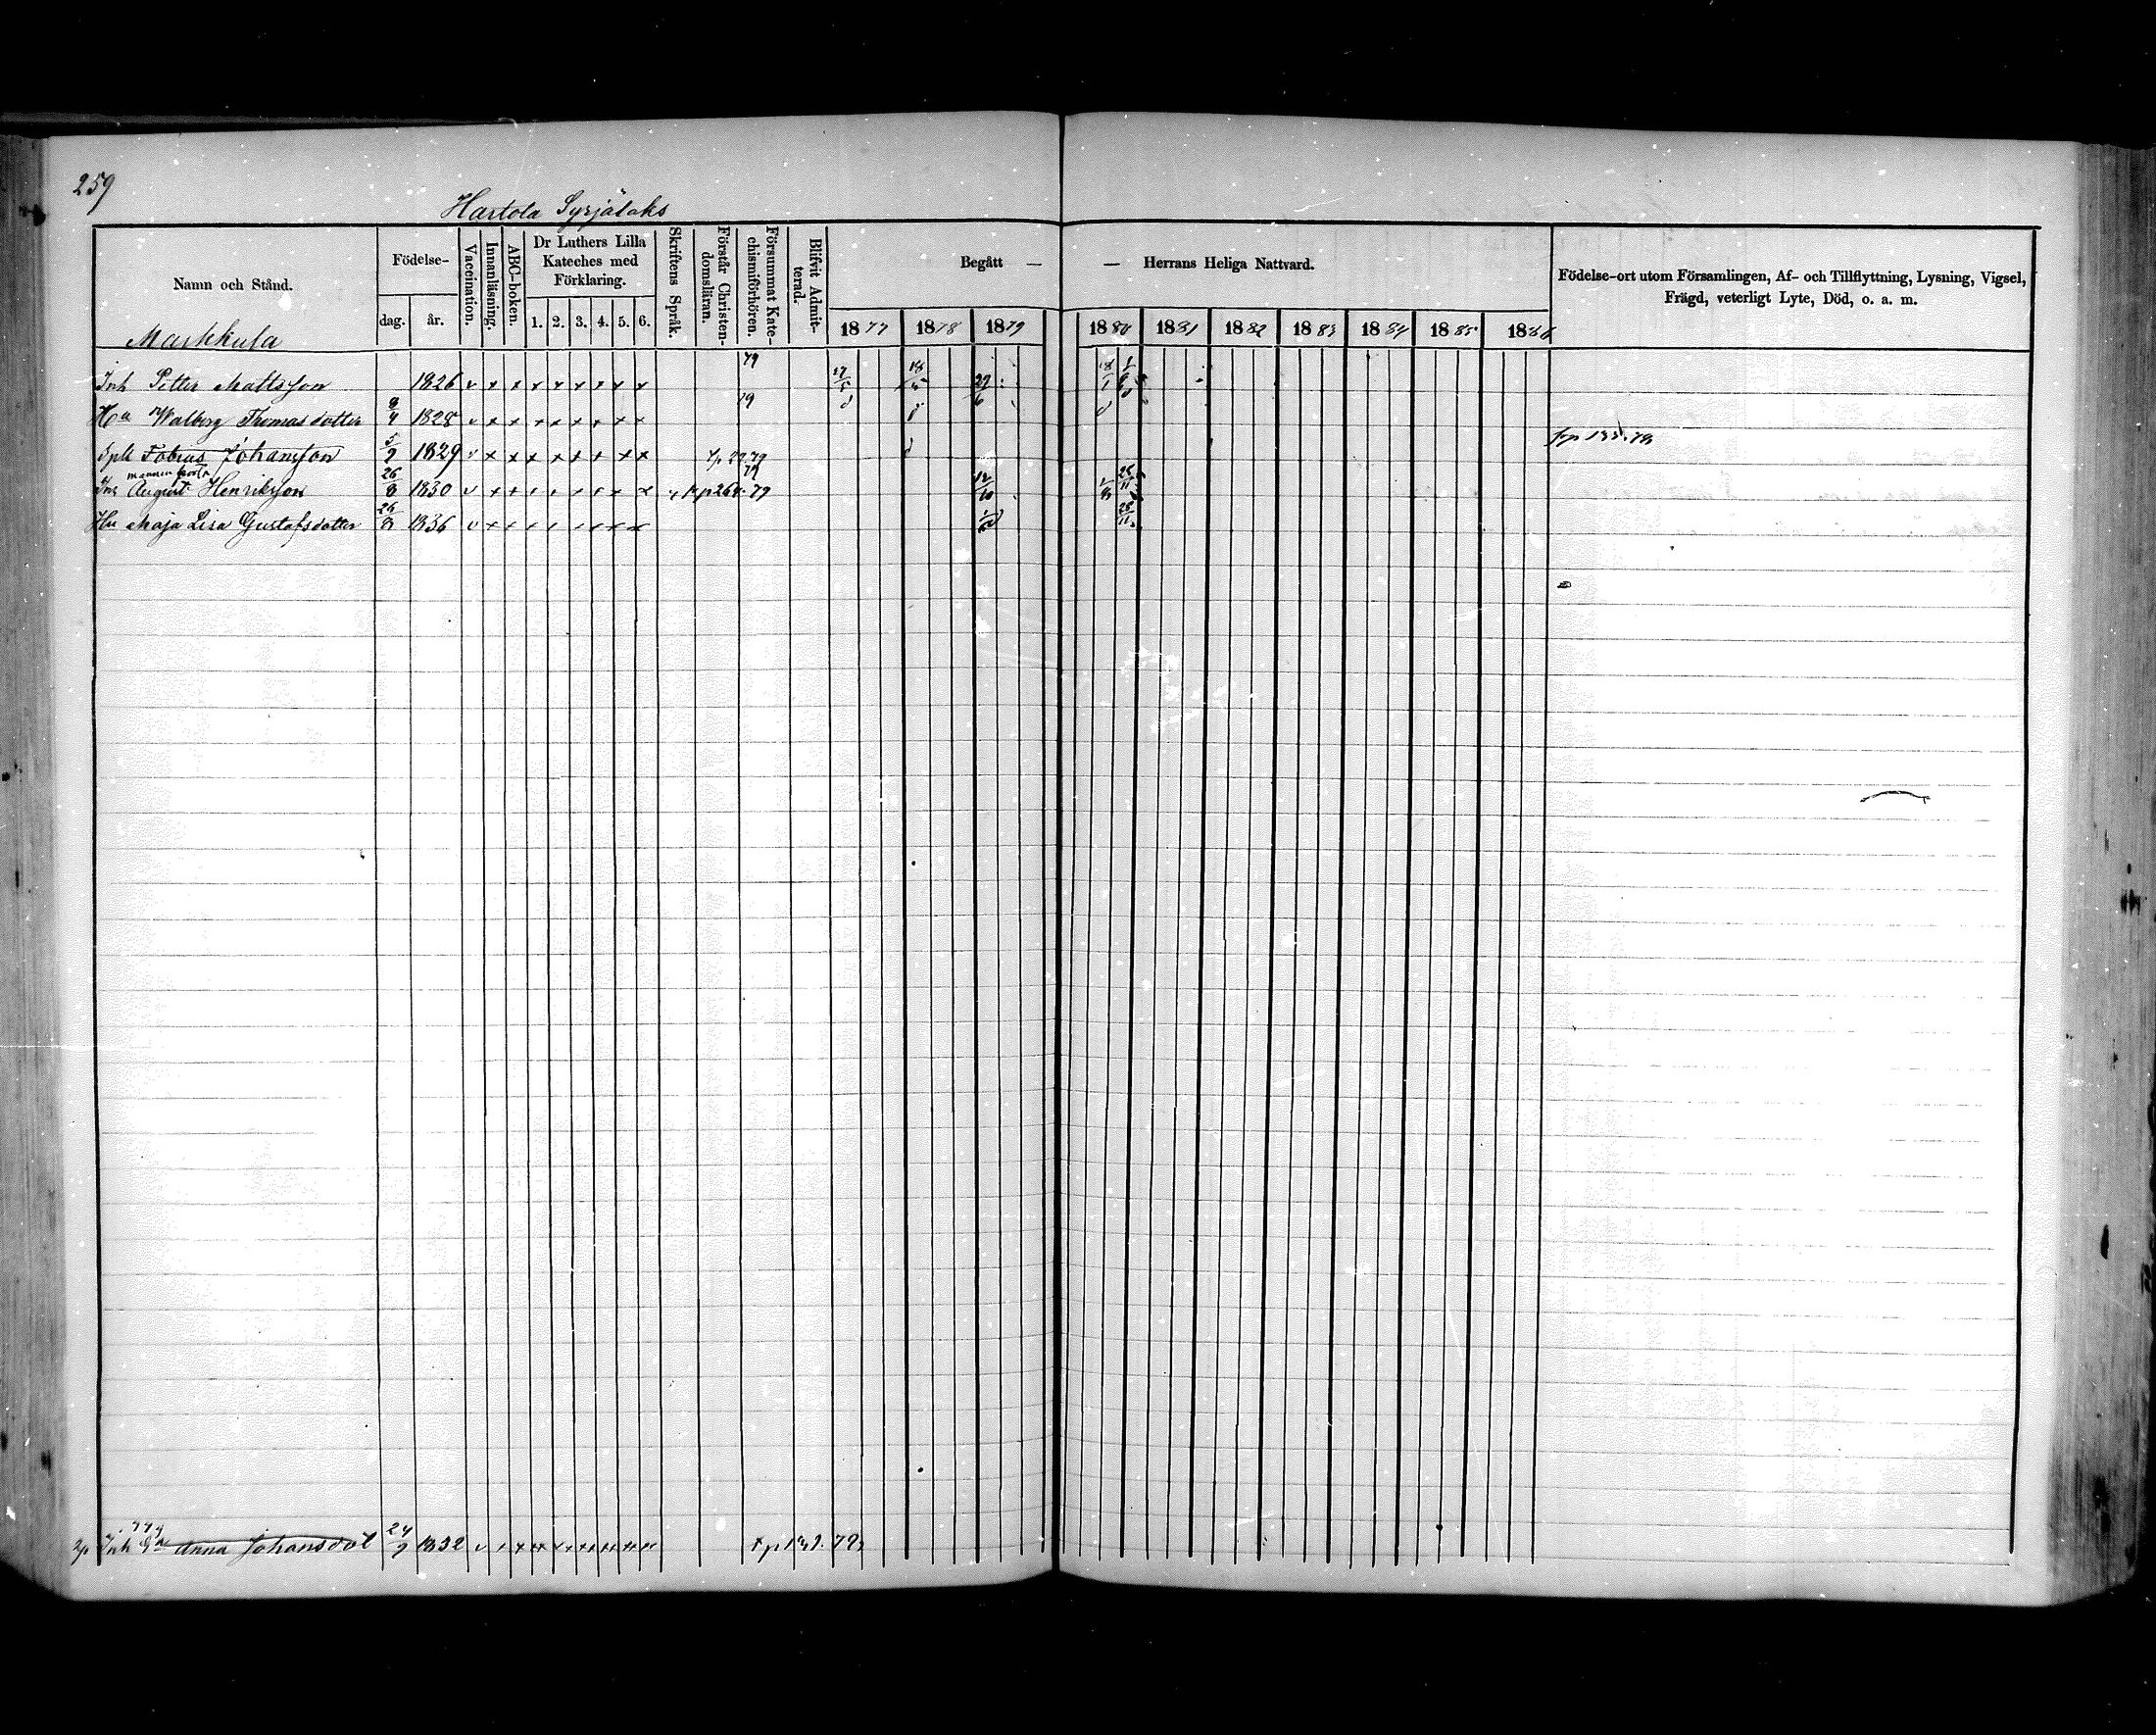 259
Hartola Syrjälaks
Namn och Stånd.
Markkula
Födelse-
dag.
år.
Vaccination.
Innanläsning.
ABC-boken.
Dr Luthers Lilla
Kateches med
Förklaring.
1. 2. 3. 4. 5. 6.
Skriftens Språk.
Förstår Christen-
domsläran.
Försummat Kate-
chismiförhören.
Blifvit Admit-
terad.
Begått — — Herrans Heliga Nattvard.
1877 1878 1879 1880 1881 1882 1883 1884 1885 1886
Födelse-ort utom Församlingen, Af- och Tillflyttning, Lysning, Vigsel,
Frägd, veterligt Lyte, Död, o. a. m.
Inh Petter Mattsson 1826 v x x x x x x x x 79 17/5 18/5 29/6
Hu Walborg Thomasdotter 8/4 1828 v x x x x x x x x 79
Tobias Johansson 5/9 1829 v x x x x x x x x 79
Inh August Henriksson 26/8 1830 v x x x x x x x x 79 12/10
Hu Maja Lisa Gustafsdotter 26/8 1836 v x x x x x x x x
Inh Anna Johansdot 24/9 1832